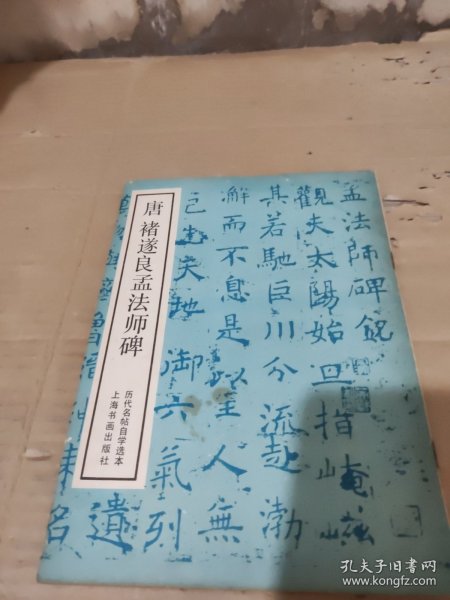 唐 褚遂良孟法师碑
历代名帖自学选本
上海书画出版社
孟法师碑铭
观夫太阳始旦指崦嵫
其若驰巨川分流赴渤
澥而不息是以至人无
己先天地御六气列
遗
名
孔夫子旧书网
www.kongfz.com